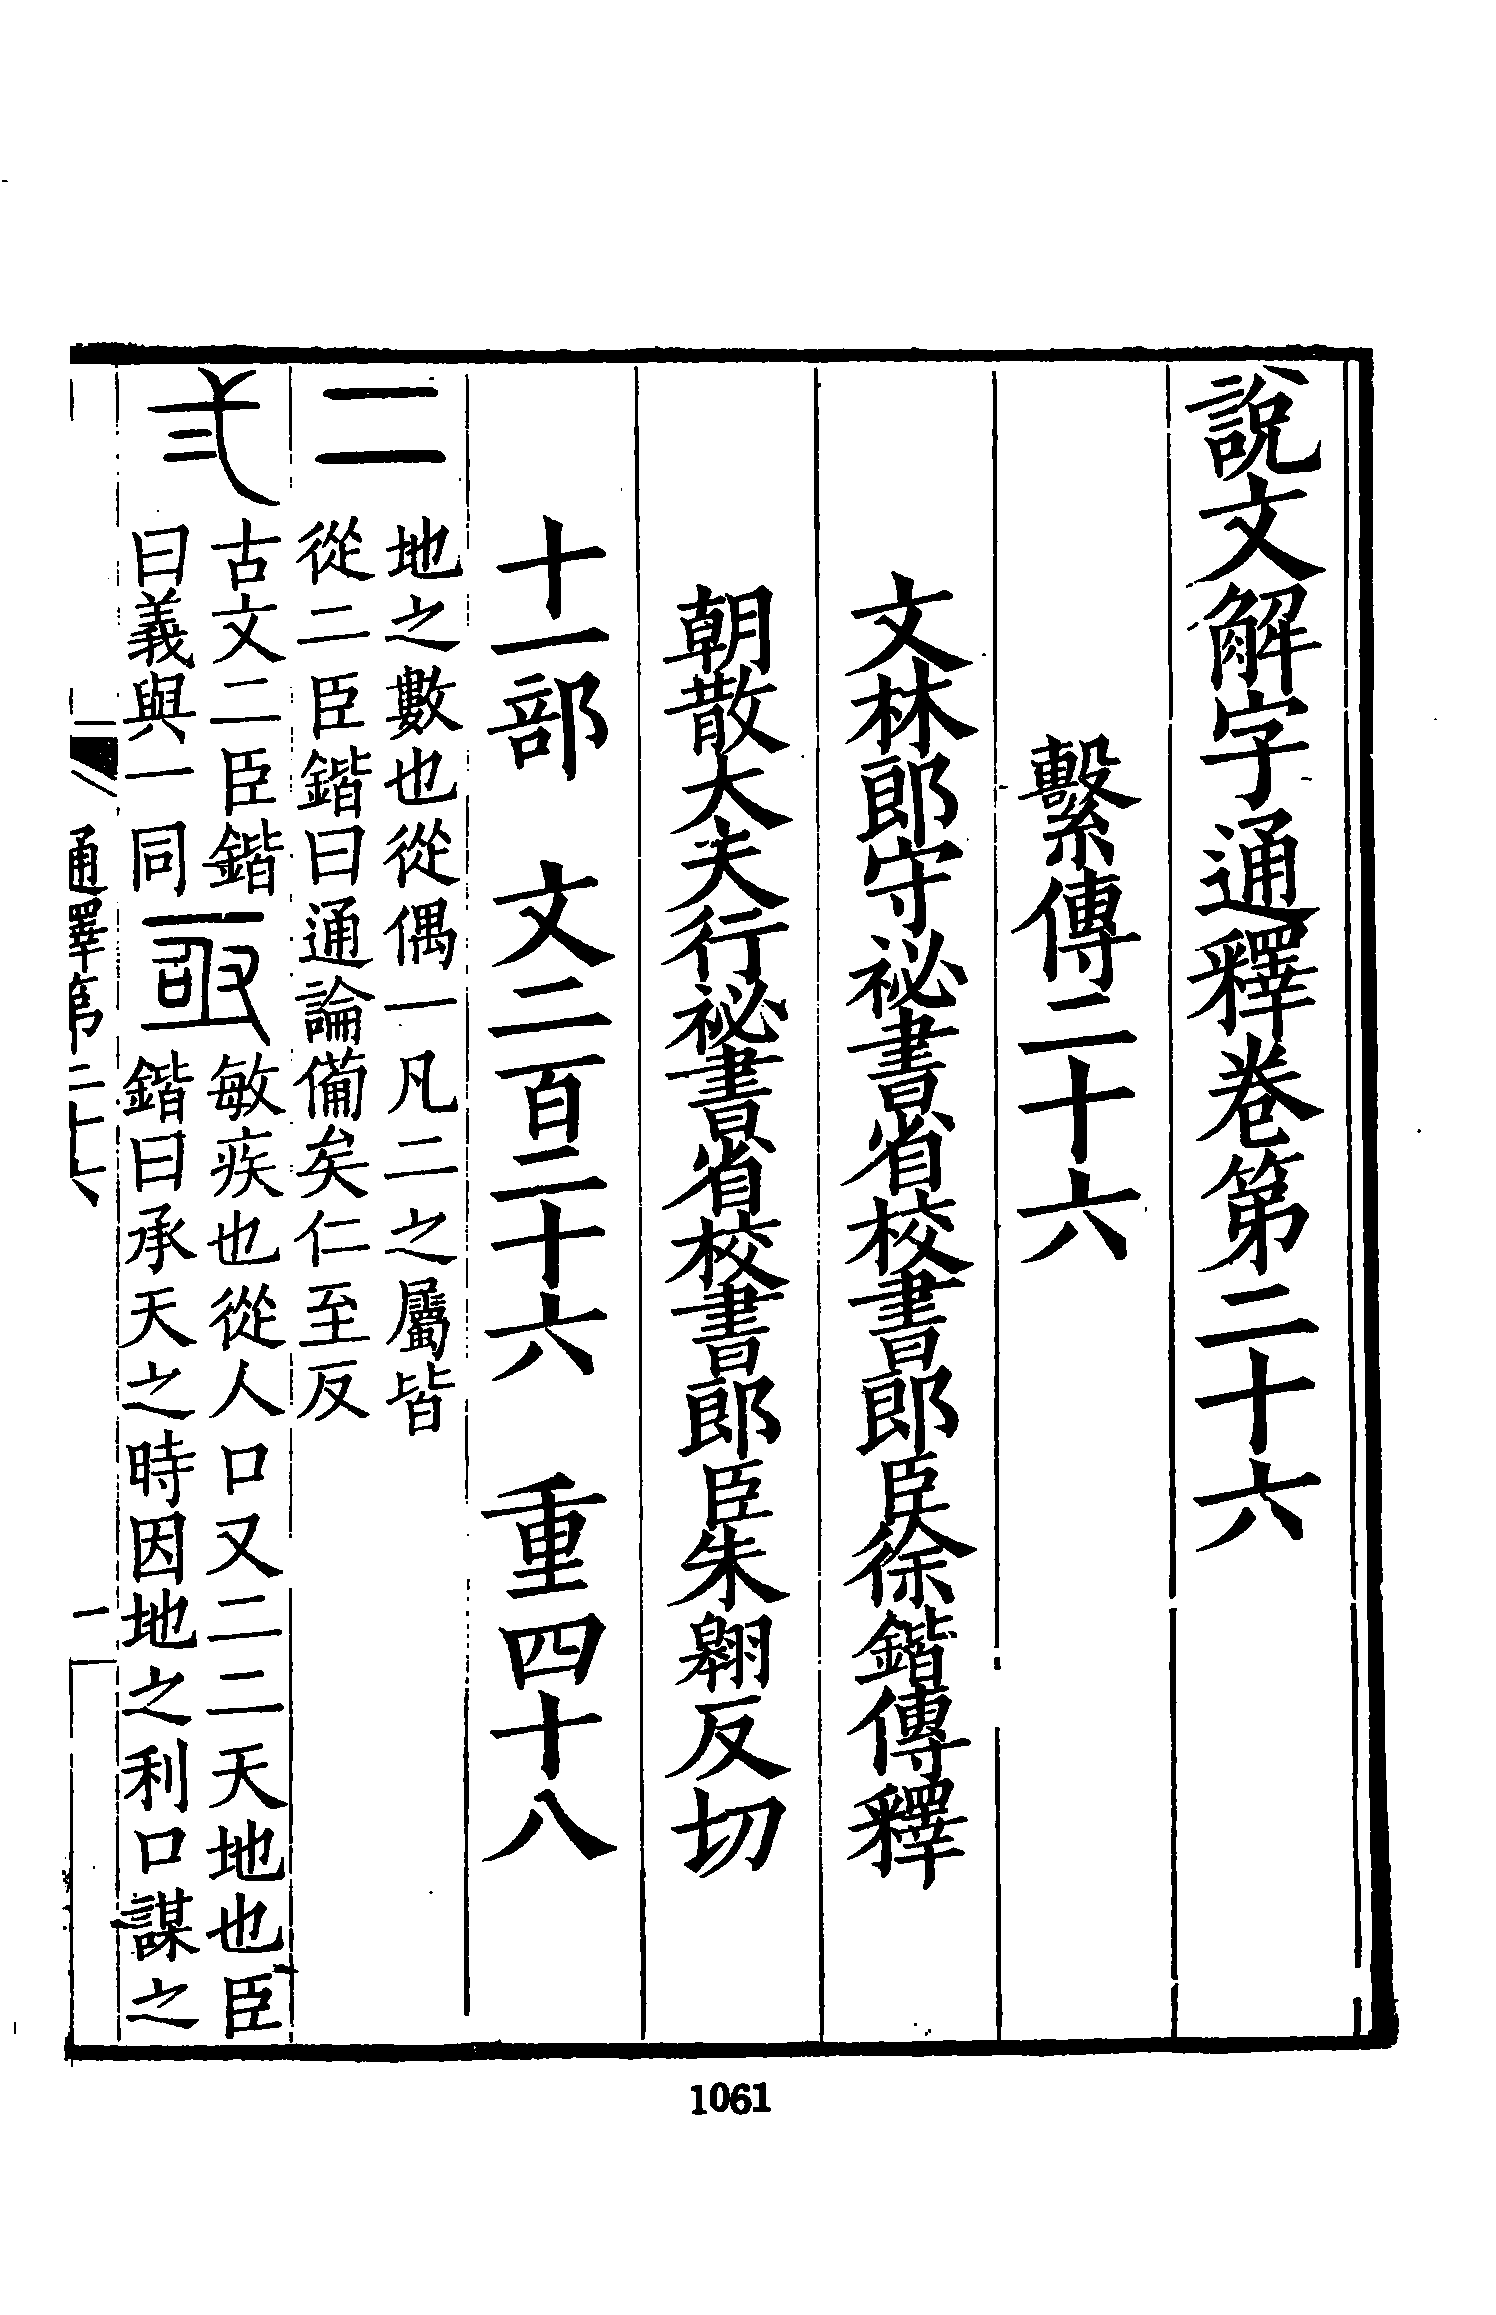 說文解字通釋卷第二十六
繫傳二十六
文林郎守祕書省校書郎臣徐鍇傳釋
朝散大夫行祕書省校書郎臣朱翱反切
十一部　文二百二十六　重四十八
二
地之數也從偶一凡二之屬皆
從二臣鍇曰通論備矣仁至反
弍
古文二臣鍇
曰義與一同
亟
敏疾也從人口又二二天地也臣
鍇曰承天之時因地之利口謀之
通釋第二十六
一
1061